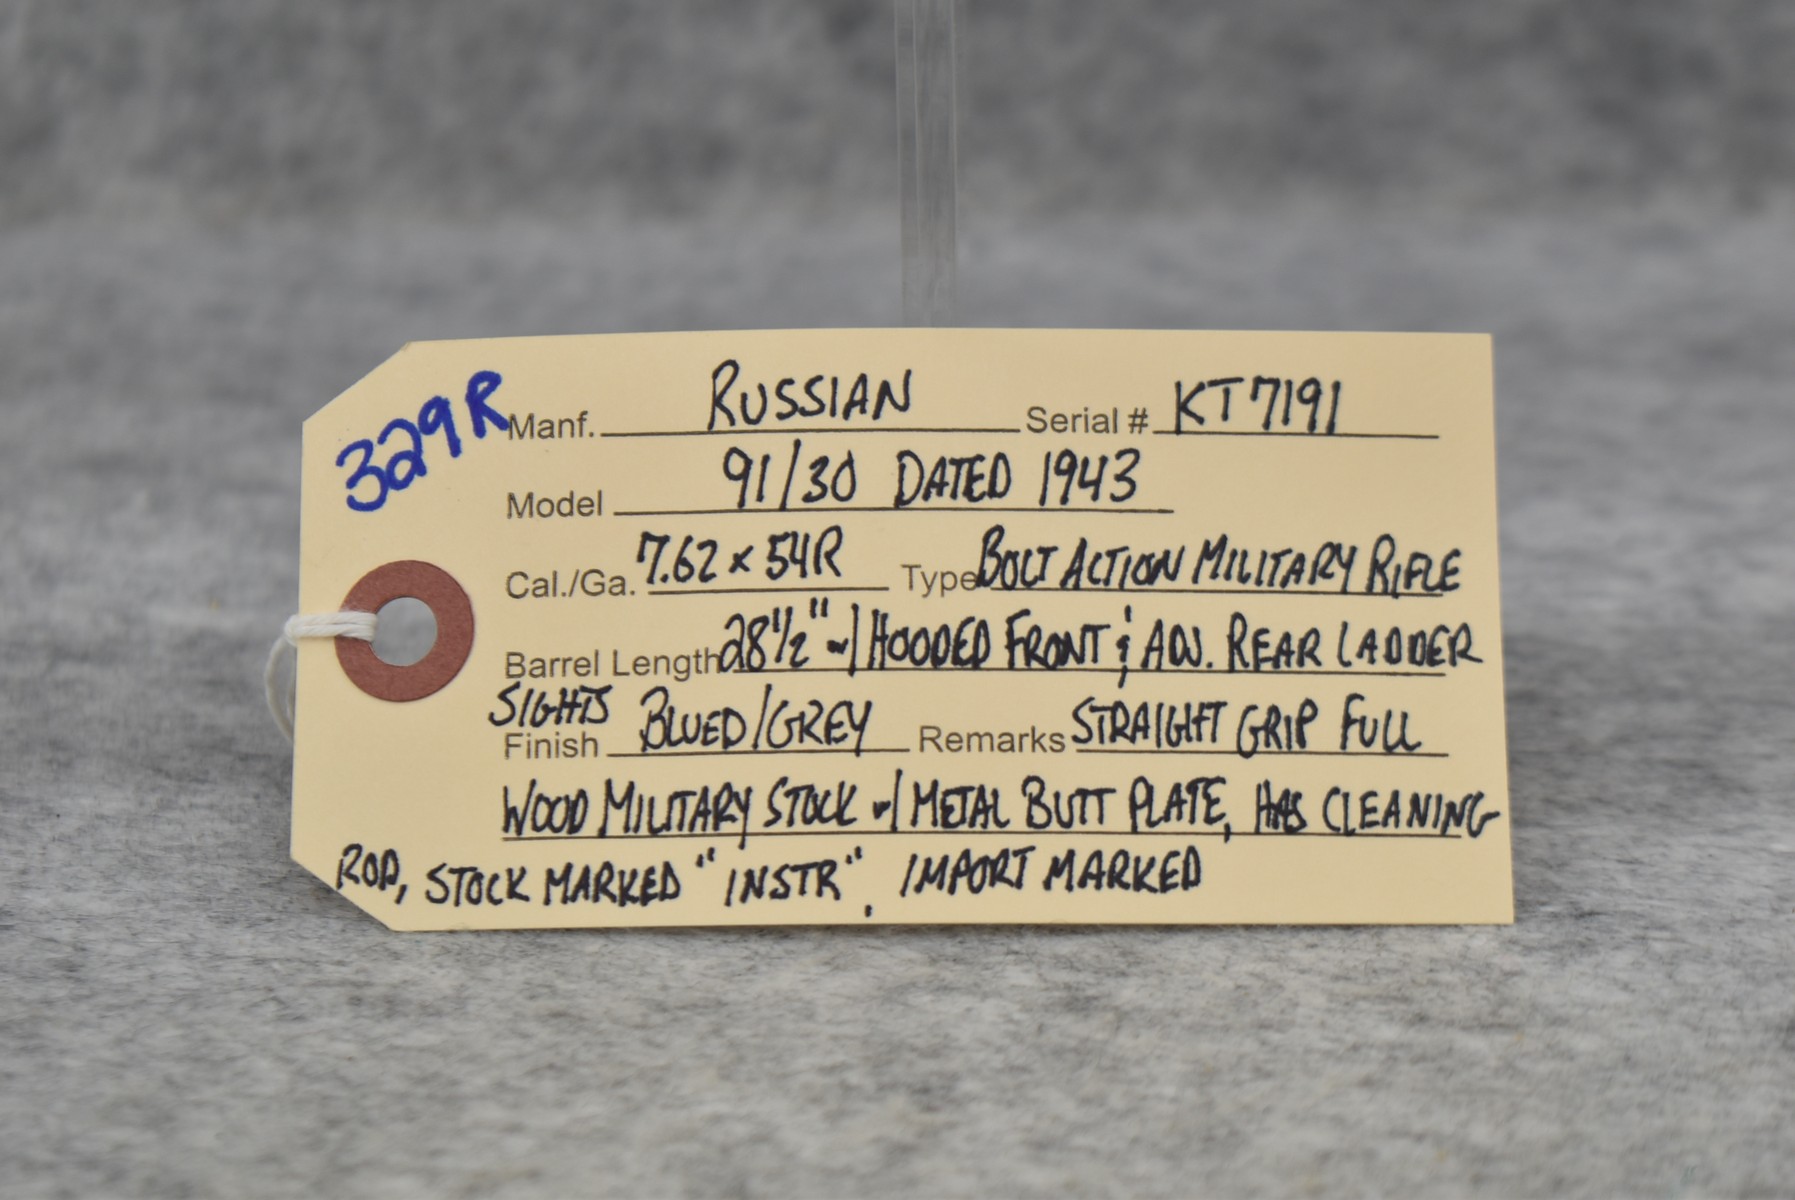 329R
Manf. RUSSIAN Serial # KT7191
Model 91/30 DATED 1943
Cal./Ga. 7.62 x 54R Type BOLT ACTION MILITARY RIFLE
Barrel Length 28 1/2" w/ HOODED FRONT & ADJ. REAR LADDER
SIGHTS
Finish BLUED/GREY Remarks STRAIGHT GRIP FULL
WOOD MILITARY STOCK w/ METAL BUTT PLATE, HAS CLEANING
ROD, STOCK MARKED "INSTR", IMPORT MARKED